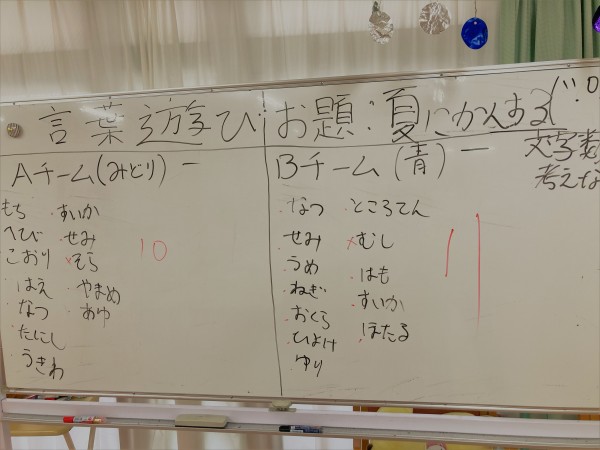 言葉遊び お題:夏にかんする
文字数
考えな
Aチーム(みどり)
もち
へび
こおり
はえ
なつ
たにし
うきわ
すいか
せみ
×そら
やまめ
あゆ
10
Bチーム(青)
なつ
せみ
うめ
ねぎ
おくら
ひよけ
ゆり
ところてん
×むし
はも
すいか
ほたる
11